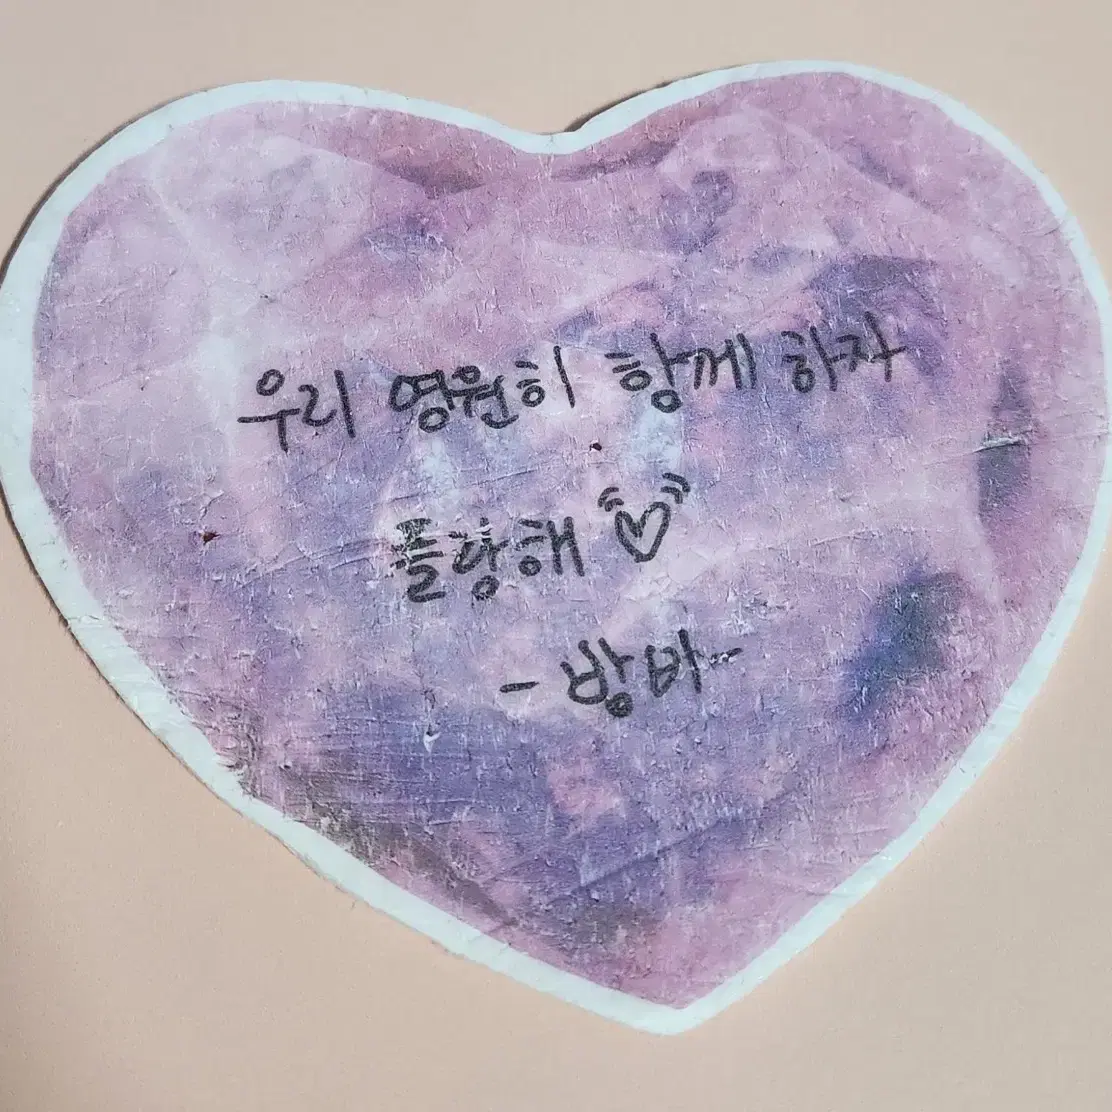 우리 영원히 함께 하자
플랑해
- 밤비-